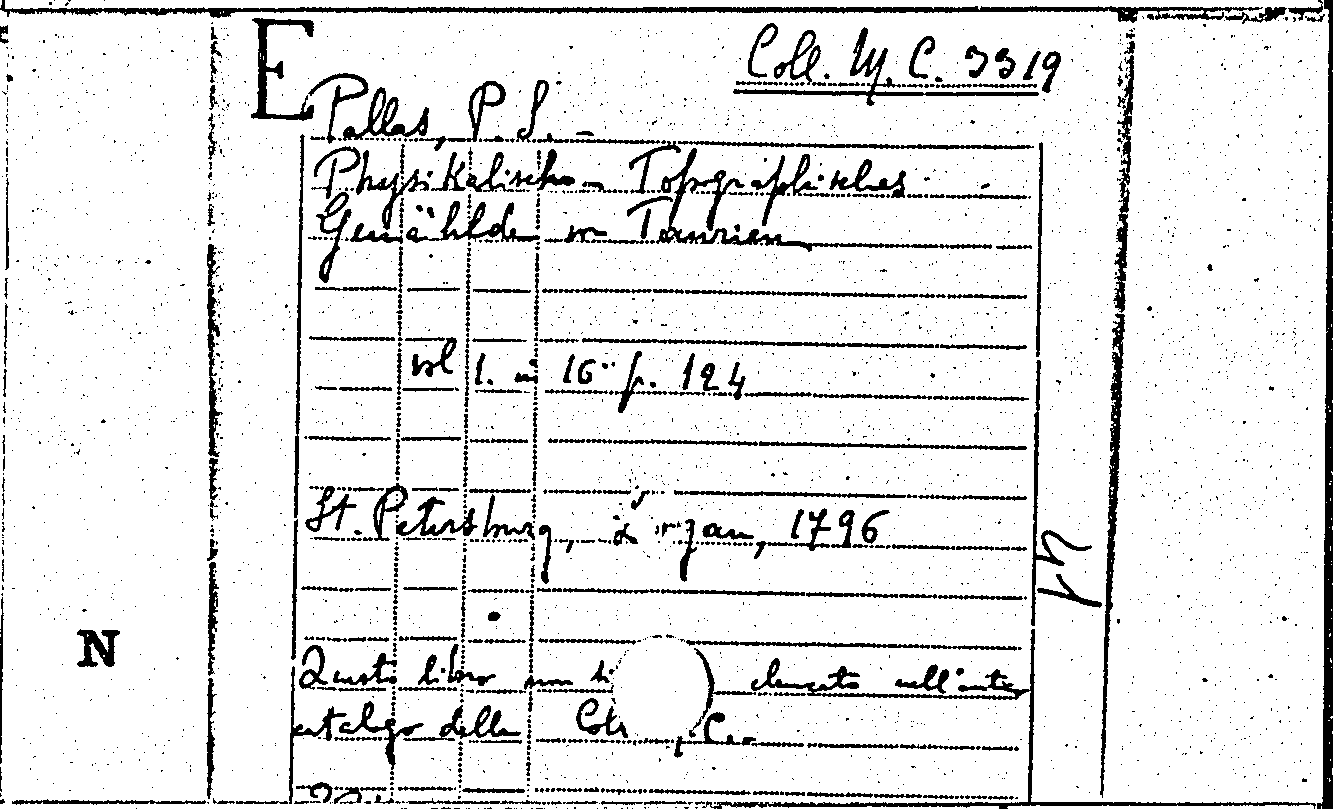 E
Coll. M. C. 3319
Pallas, P. S. -
Physikalisch - Topographisches
Gemählde von Taurien
vol 1. in 16° p. 124
St. Petersburg, Logan, 1796
44
N
Questo libro non elencato nell'antico
catalogo della C.